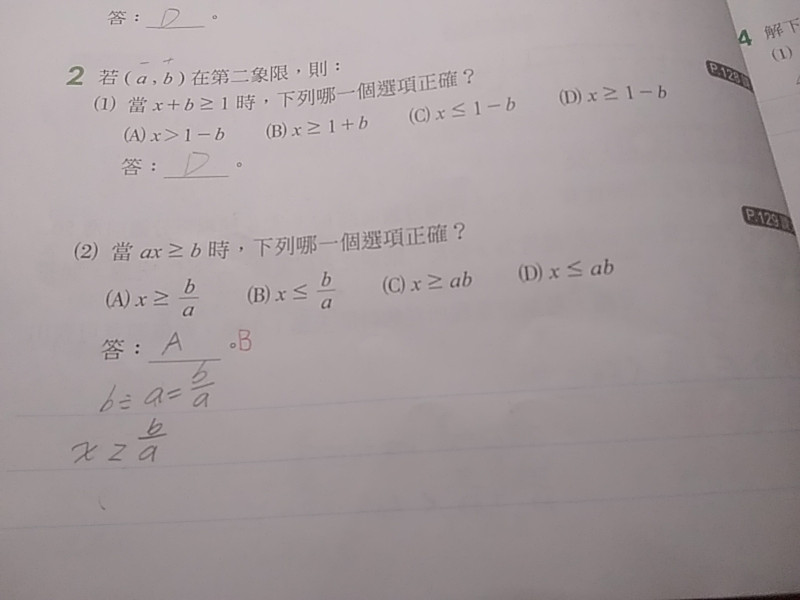 答：D。
2 若 ( a , b ) 在第二象限，則：
− +
(1) 當 x＋b ≥ 1 時，下列哪一個選項正確？
P.128
(A) x > 1－b (B) x ≥ 1＋b (C) x ≤ 1－b (D) x ≥ 1－b
答：D。
P.129
(2) 當 ax ≥ b 時，下列哪一個選項正確？
(A) x ≥ b/a (B) x ≤ b/a (C) x ≥ ab (D) x ≤ ab
答：A。B
b ÷ a = b/a
x ≥ b/a
4 解下
(1)